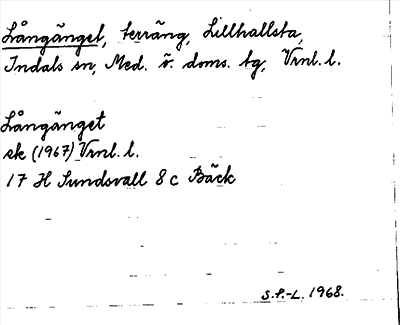 Långänget, terräng, Lillhallsta,
Indals sn, Med. v. doms. tg, Vrnl. l.
Långänget
ek (1967) Vrnl. l.
17 H Sundsvall 8 c Bäck
S.P.-L. 1968.